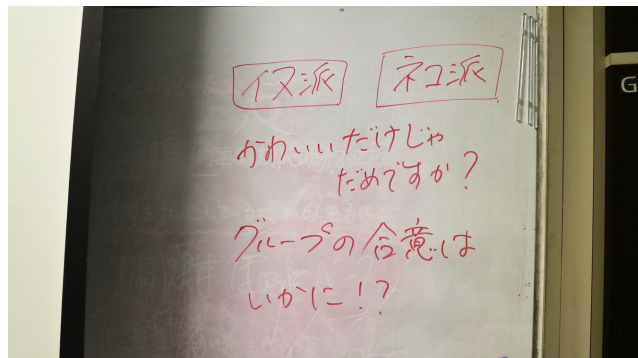 イヌ派 ネコ派
かわいいだけじゃ
だめですか？
グループの合意は
いかに！？
G